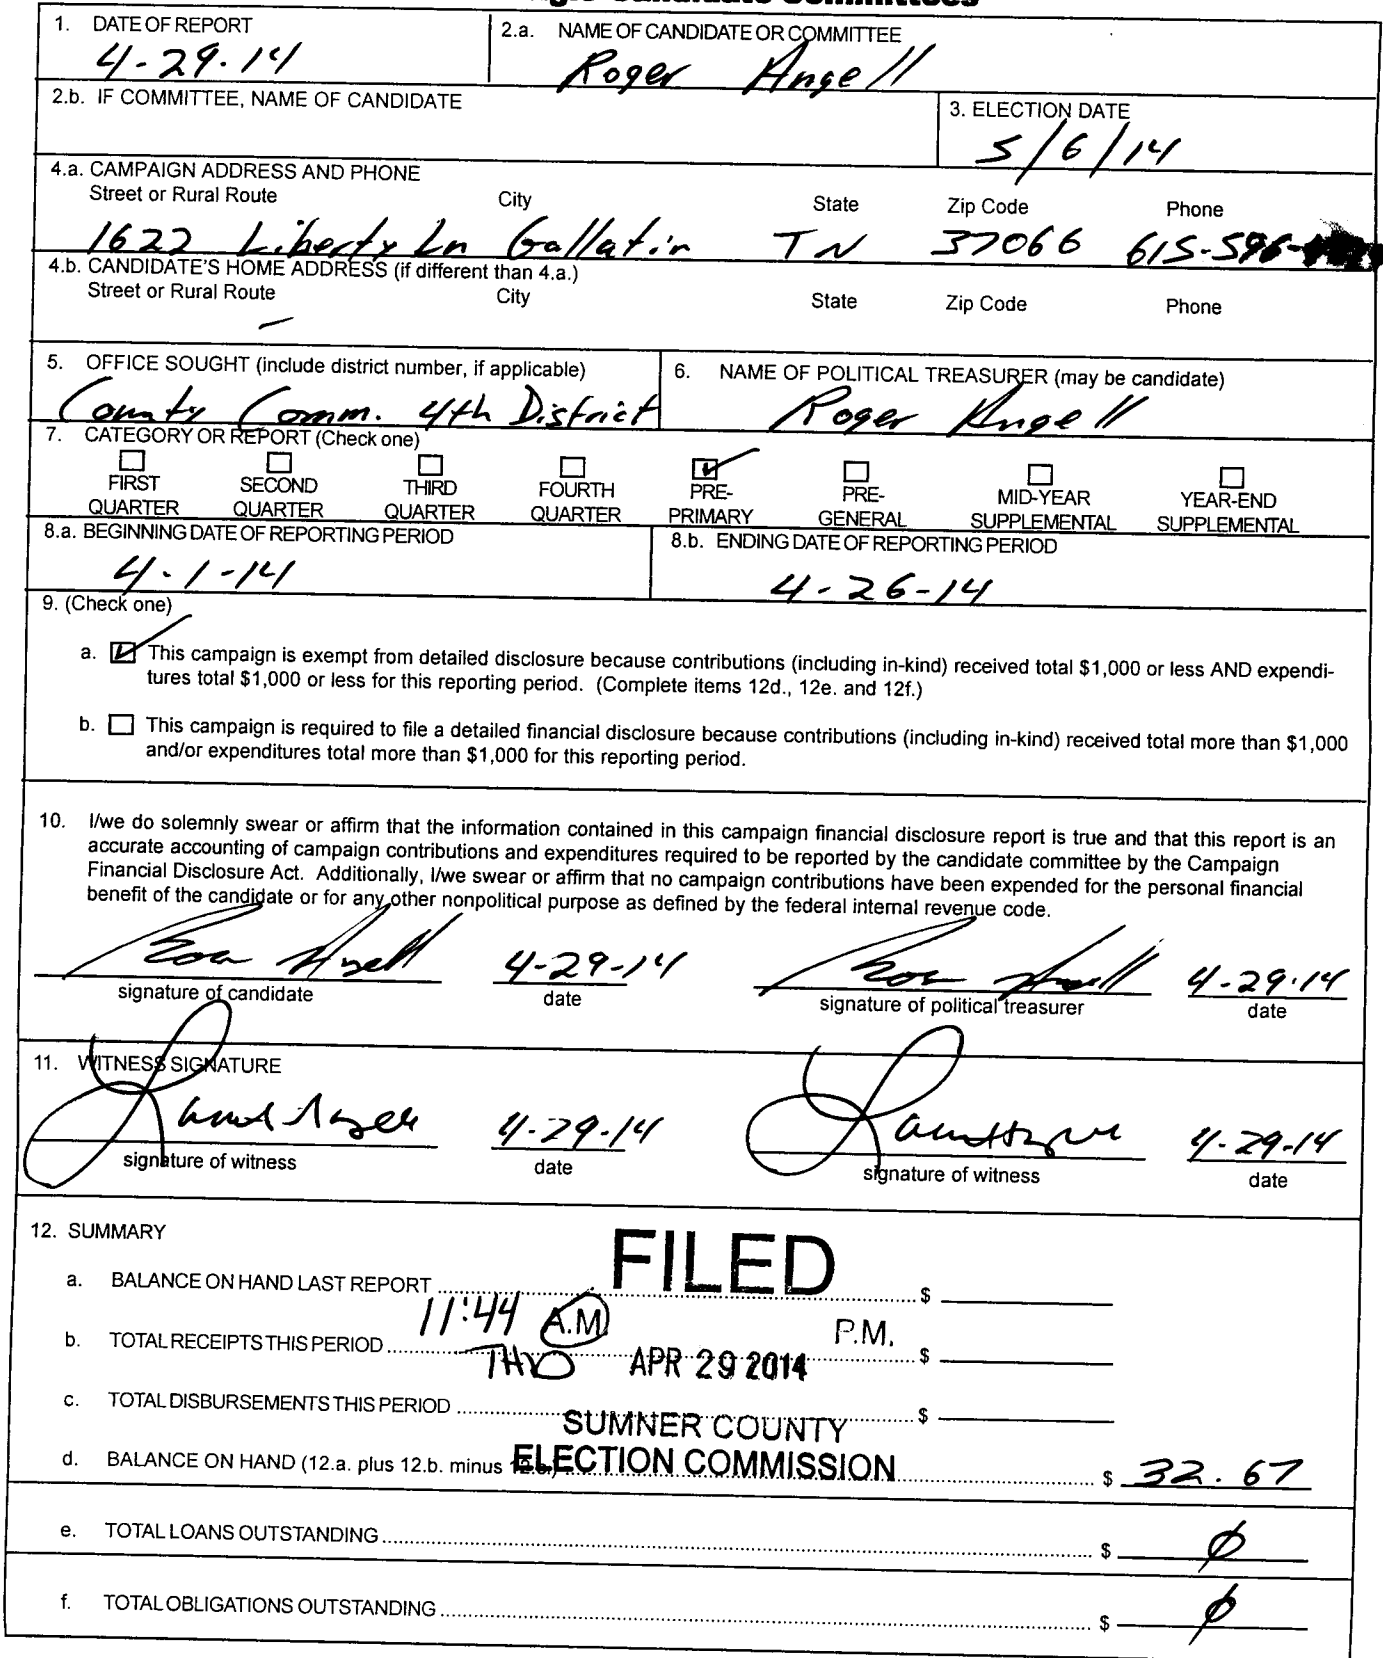 1. DATE OF REPORT
4-29-14
2.a. NAME OF CANDIDATE OR COMMITTEE
Roger Angell
2.b. IF COMMITTEE, NAME OF CANDIDATE
3. ELECTION DATE
5/6/14
4.a. CAMPAIGN ADDRESS AND PHONE
Street or Rural Route City State Zip Code Phone
1622 Liberty Ln Gallatin TN 37066 615-596-
4.b. CANDIDATE'S HOME ADDRESS (if different than 4.a.)
Street or Rural Route City State Zip Code Phone
–
5. OFFICE SOUGHT (include district number, if applicable)
County Comm. 4th District
6. NAME OF POLITICAL TREASURER (may be candidate)
Roger Angell
7. CATEGORY OR REPORT (Check one)
FIRST QUARTER
SECOND QUARTER
THIRD QUARTER
FOURTH QUARTER
PRE-PRIMARY
PRE-GENERAL
MID-YEAR SUPPLEMENTAL
YEAR-END SUPPLEMENTAL
8.a. BEGINNING DATE OF REPORTING PERIOD
4-1-14
8.b. ENDING DATE OF REPORTING PERIOD
4-26-14
9. (Check one)
a. This campaign is exempt from detailed disclosure because contributions (including in-kind) received total $1,000 or less AND expendi-
tures total $1,000 or less for this reporting period. (Complete items 12d., 12e. and 12f.)
b. This campaign is required to file a detailed financial disclosure because contributions (including in-kind) received total more than $1,000
and/or expenditures total more than $1,000 for this reporting period.
10. I/we do solemnly swear or affirm that the information contained in this campaign financial disclosure report is true and that this report is an
accurate accounting of campaign contributions and expenditures required to be reported by the candidate committee by the Campaign
Financial Disclosure Act. Additionally, I/we swear or affirm that no campaign contributions have been expended for the personal financial
benefit of the candidate or for any other nonpolitical purpose as defined by the federal internal revenue code.
4-29-14 4-29-14
signature of candidate date signature of political treasurer date
11. WITNESS SIGNATURE
4-29-14 4-29-14
signature of witness date signature of witness date
12. SUMMARY
FILED
a. BALANCE ON HAND LAST REPORT $
11:44 A.M. P.M.
b. TOTAL RECEIPTS THIS PERIOD $
APR 29 2014
c. TOTAL DISBURSEMENTS THIS PERIOD $
SUMNER COUNTY
ELECTION COMMISSION
d. BALANCE ON HAND (12.a. plus 12.b. minus $ 32.67
e. TOTAL LOANS OUTSTANDING $ ϕ
f. TOTAL OBLIGATIONS OUTSTANDING $ ϕ